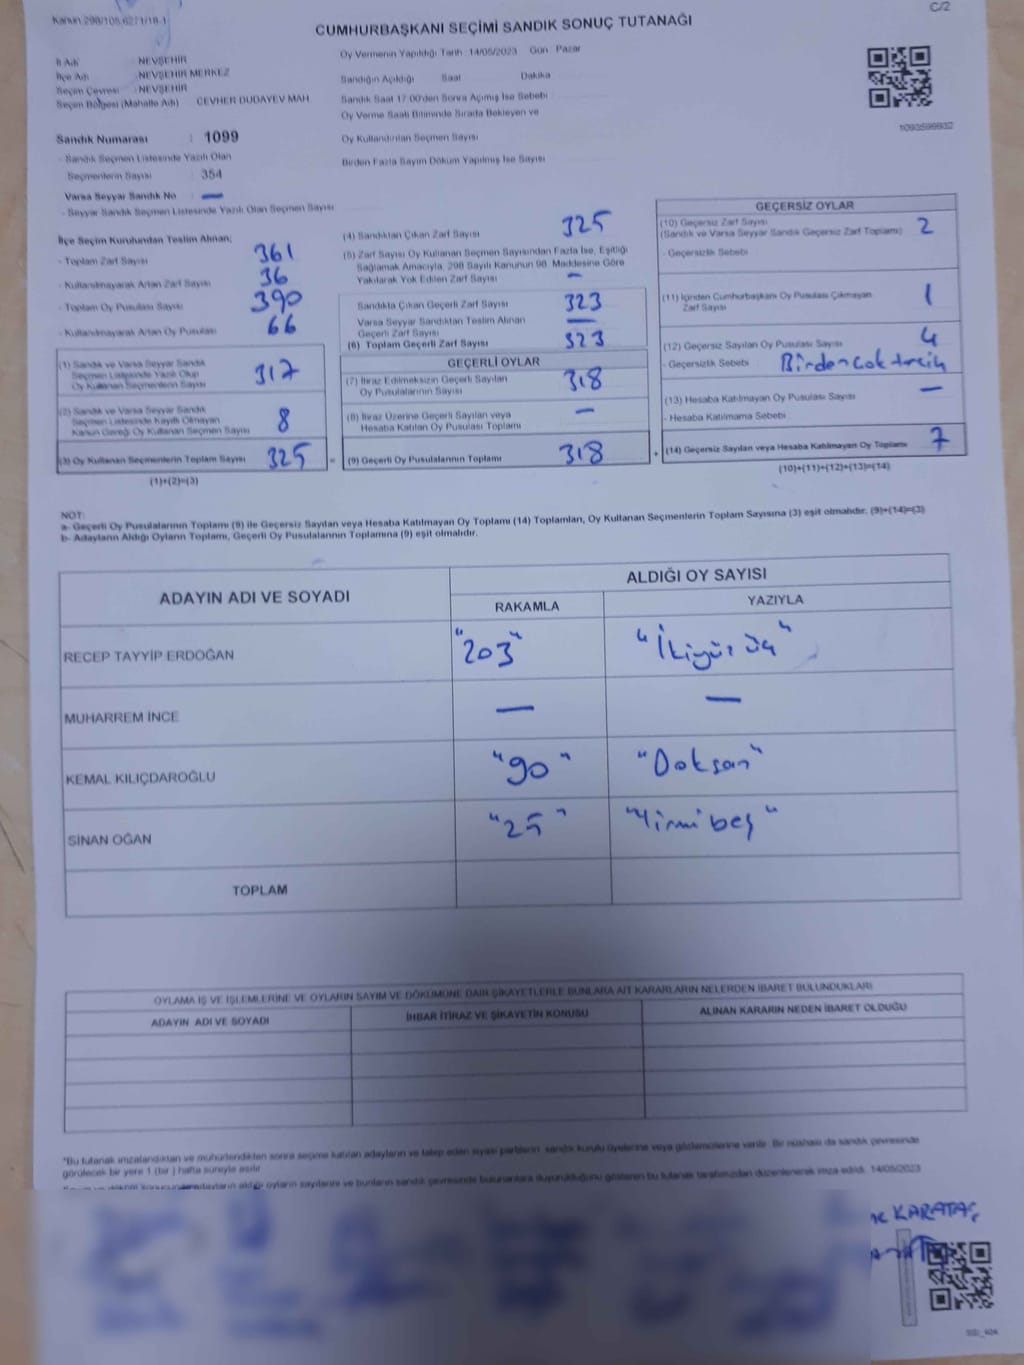 Kanun:298/105,6271/18-1
C/2
CUMHURBAŞKANI SEÇİMİ SANDIK SONUÇ TUTANAĞI
İl Adı : NEVŞEHİR
İlçe Adı : NEVŞEHİR MERKEZ
Seçim Çevresi : NEVŞEHİR
Seçim Bölgesi (Mahalle Adı) CEVHER DUDAYEV MAH.
Sandık Numarası : 1099
- Sandık Seçmen Listesinde Yazılı Olan
Seçmenlerin Sayısı : 354
Varsa Seyyar Sandık No : —
- Seyyar Sandık Seçmen Listesinde Yazılı Olan Seçmen Sayısı
Oy Vermenin Yapıldığı Tarih : 14/05/2023 Gün : Pazar
Sandığın Açıldığı Saat Dakika
Sandık Saat 17:00'den Sonra Açımış İse Sebebi
Oy Verme Saati Bitiminde Sırada Bekleyen ve
Oy Kullandırılan Seçmen Sayısı
Birden Fazla Sayım Döküm Yapılmış İse Sayısı
1093599932
İlçe Seçim Kurulundan Teslim Alınan;
- Toplam Zarf Sayısı 361
- Kullanılmayarak Artan Zarf Sayısı 36
- Toplam Oy Pusulası Sayısı 390
- Kullanılmayarak Artan Oy Pusulası 66
(1) Sandık ve Varsa Seyyar Sandık
Seçmen Listesinde Yazılı Olup
Oy Kullanan Seçmenlerin Sayısı 317
(2) Sandık ve Varsa Seyyar Sandık
Seçmen Listesinde Kayıtlı Olmayan
Kanun Gereği Oy Kullanan Seçmen Sayısı 8
(3) Oy Kullanan Seçmenlerin Toplam Sayısı 325 =
(1)+(2)=(3)
(4) Sandıktan Çıkan Zarf Sayısı 325
(5) Zarf Sayısı Oy Kullanan Seçmen Sayısından Fazla İse, Eşitliği
Sağlamak Amacıyla, 298 Sayılı Kanunun 98. Maddesine Göre
Yakılarak Yok Edilen Zarf Sayısı —
Sandıkta Çıkan Geçerli Zarf Sayısı 323
Varsa Seyyar Sandıktan Teslim Alınan
Geçerli Zarf Sayısı —
(6) Toplam Geçerli Zarf Sayısı 323
GEÇERLİ OYLAR
(7) İtiraz Edilmeksizin Geçerli Sayılan
Oy Pusulalarının Sayısı 318
(8) İtiraz Üzerine Geçerli Sayılan veya
Hesaba Katılan Oy Pusulası Toplamı —
(9) Geçerli Oy Pusulalarının Toplamı 318 +
GEÇERSİZ OYLAR
(10) Geçersiz Zarf Sayısı
(Sandık ve Varsa Seyyar Sandık Geçersiz Zarf Toplamı) 2
- Geçersizlik Sebebi
(11) İçinden Cumhurbaşkanı Oy Pusulası Çıkmayan
Zarf Sayısı 1
(12) Geçersiz Sayılan Oy Pusulası Sayısı 4
- Geçersizlik Sebebi Birden çok tercih
(13) Hesaba Katılmayan Oy Pusulası Sayısı —
- Hesaba Katılmama Sebebi
(14) Geçersiz Sayılan veya Hesaba Katılmayan Oy Toplamı 7
(10)+(11)+(12)+(13)=(14)
NOT:
a- Geçerli Oy Pusulalarının Toplamı (9) ile Geçersiz Sayılan veya Hesaba Katılmayan Oy Toplamı (14) Toplamları, Oy Kullanan Seçmenlerin Toplam Sayısına (3) eşit olmalıdır. (9)+(14)=(3)
b- Adayların Aldığı Oyların Toplamı, Geçerli Oy Pusulalarının Toplamına (9) eşit olmalıdır.
ADAYIN ADI VE SOYADI
ALDIĞI OY SAYISI
RAKAMLA YAZIYLA
RECEP TAYYİP ERDOĞAN "203" "İkiyüz üç"
MUHARREM İNCE — —
KEMAL KILIÇDAROĞLU "90" "Doksan"
SİNAN OĞAN "25" "Yirmi beş"
TOPLAM
OYLAMA İŞ VE İŞLEMLERİNE VE OYLARIN SAYIM VE DÖKÜMÜNE DAİR ŞİKAYETLERLE BUNLARA AİT KARARLARIN NELERDEN İBARET BULUNDUKLARI
ADAYIN ADI VE SOYADI İHBAR İTİRAZ VE ŞİKAYETİN KONUSU ALINAN KARARIN NEDEN İBARET OLDUĞU
*Bu tutanak imzalandıktan ve mühürlendikten sonra seçime katılan adayların ve talep eden siyasi partilerin sandık kurulu üyelerine veya gözlemcilerine verilir. Bir nüshası da sandık çevresinde
görülecek bir yere 1 (bir ) hafta süreyle asılır.
adayların aldığı oyların sayılarını ve bunların sandık çevresinde bulunanlara duyurulduğunu gösteren bu tutanak tarafımızdan düzenlenerek imza edildi. 14/05/2023
KARATAŞ